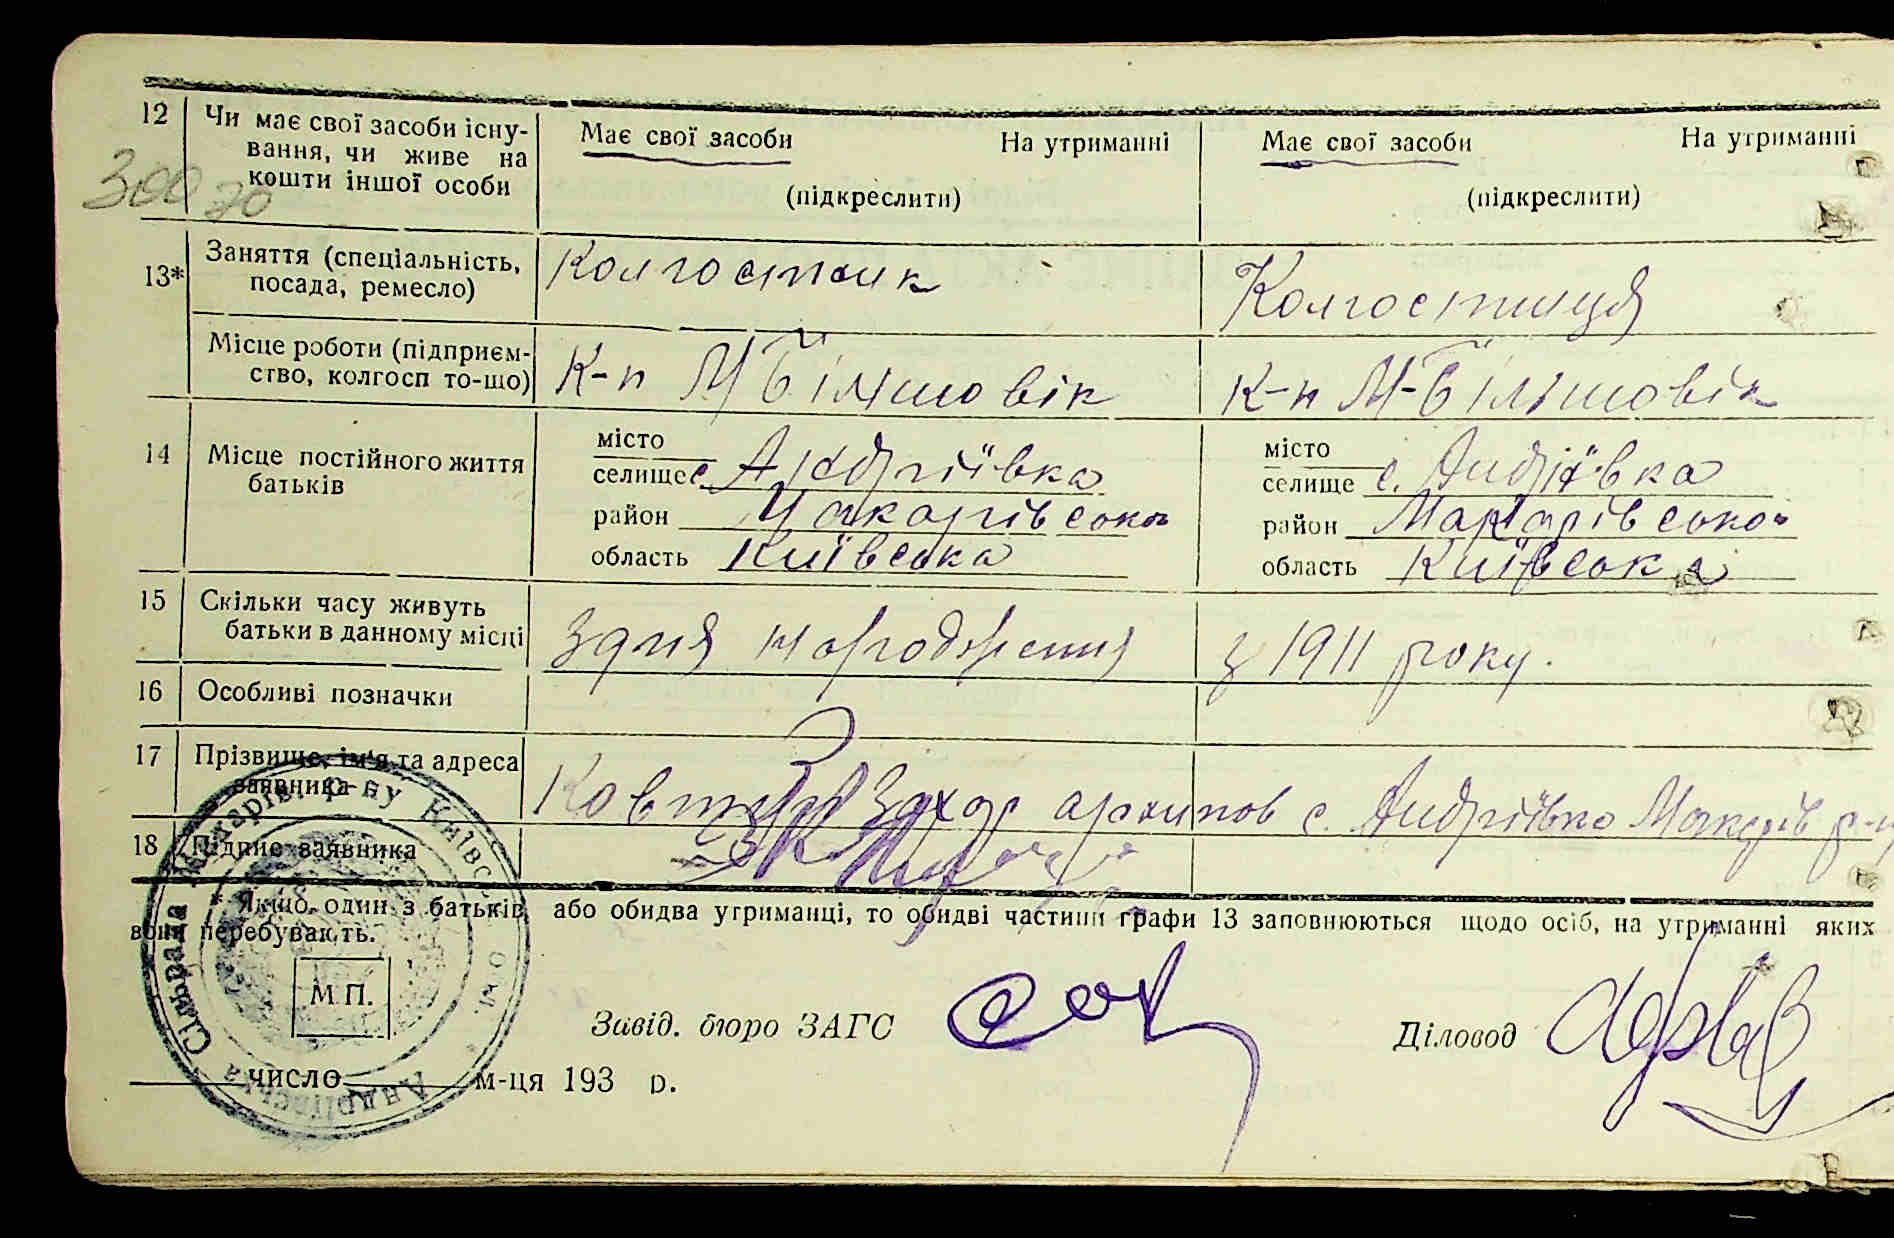 12 Чи має свої засоби існу-
вання, чи живе на
кошти іншої особи
Має свої засоби На утриманні
(підкреслити)
Має свої засоби На утриманні
(підкреслити)
300
13* Заняття (спеціальність,
посада, ремесло)
Колгоспник
Колгоспниця
Місце роботи (підприєм-
ство, колгосп то-що)
К-п М Більшовік
К-п М-Більшовік
14 Місце постійного життя
батьків
місто
селище с. Андріївка
район Макарівсько
область Київська
місто
селище с. Андріївка
район Макарівсько
область Київська
15 Скільки часу живуть
батьки в данному місці
З дня народження
з 1911 року.
16 Особливі позначки
17 Прізвище, ім'я та адреса
заявника
Захар архипов с. Андріївка Макарів р-н
18 Підпис заявника
* Якщо один з батьків, або обидва утриманці, то обидві частини графи 13 заповнюються щодо осіб, на утриманні яких
вони перебувають.
М.П.
Завід. бюро ЗАГС
Діловод
число м-ця 193 р.
Андріївська Сільрада Макарів. р-ну Київс. обл.